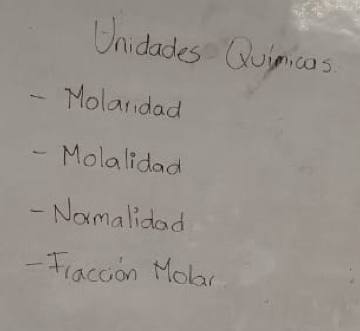 Unidades Químicas.
- Molaridad
- Molalidad
- Normalidad
- Fracción Molar